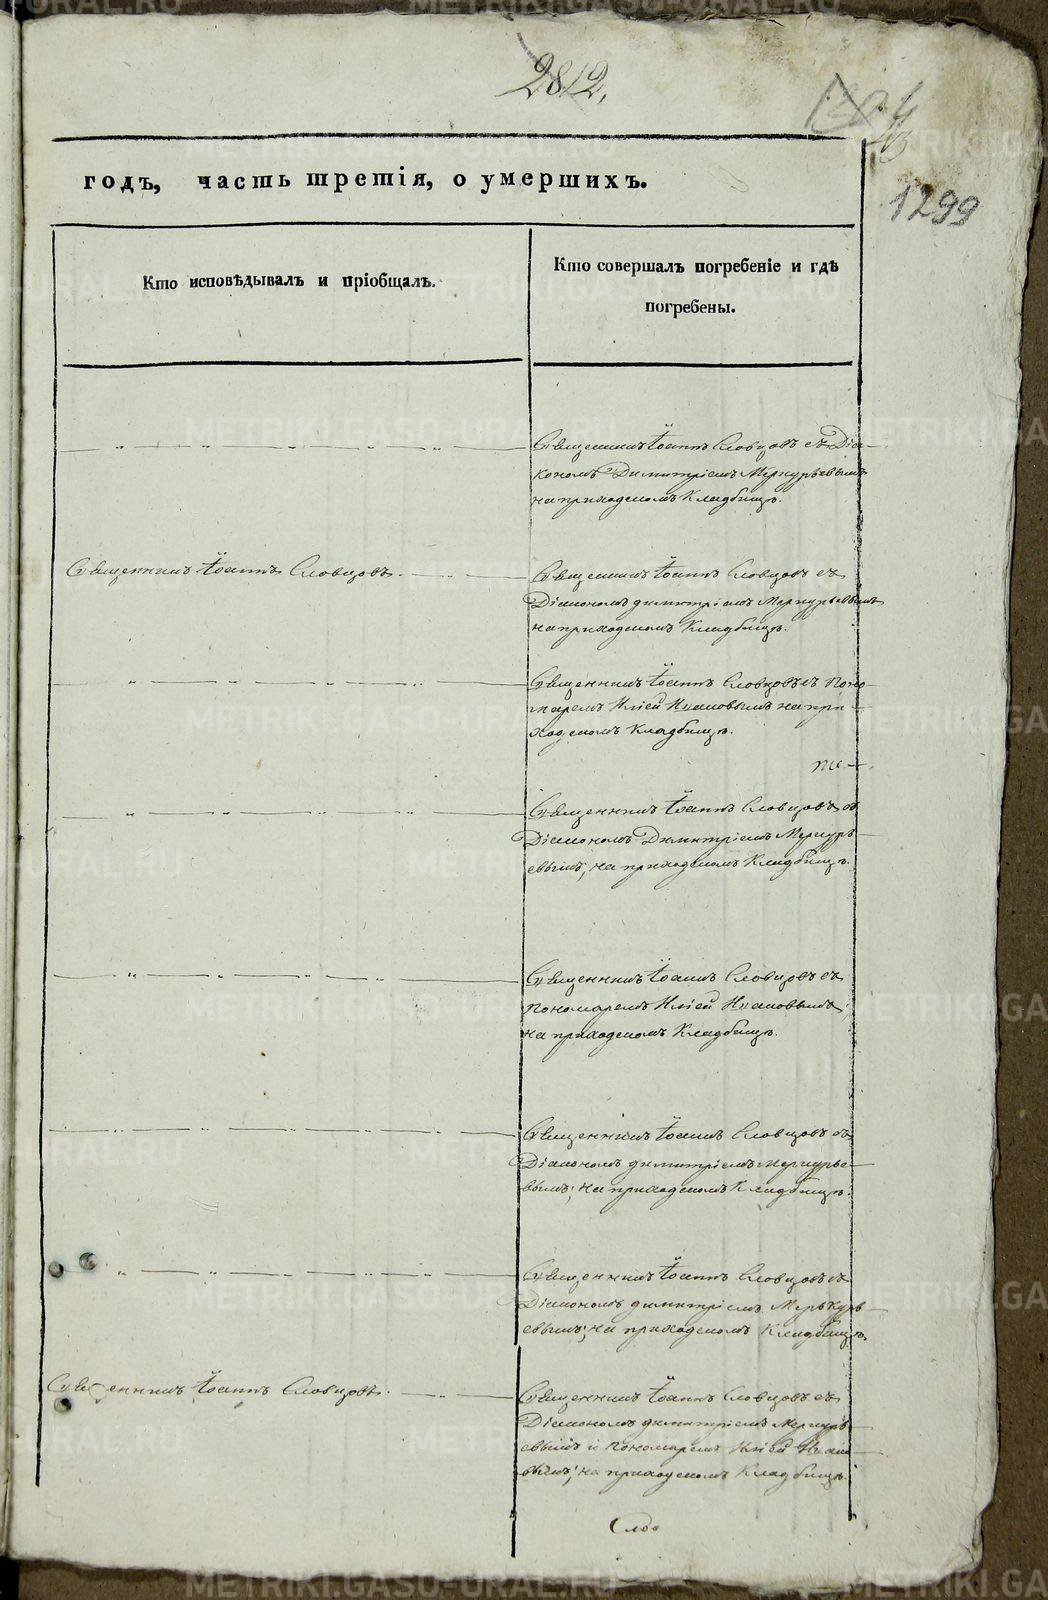 2812,
43
1299
годъ, часть третія, о умершихъ.
Кто исповѣдывалъ и пріобщалъ.
Кто совершалъ погребеніе и гдѣ
погребены.
Священникъ Іоаннъ Словцовъ съ Діа-
кономъ Димитріемъ Меркурьевымъ
на приходскомъ Кладбищѣ.
Священникъ Іоаннъ Словцовъ.
Священникъ Іоаннъ Словцовъ съ
Діакономъ Димитріемъ Меркурьевымъ
на приходскомъ Кладбищѣ.
Священникъ Іоаннъ Словцовъ съ Поно-
маремъ Иліей Ивановымъ на при-
ходскомъ Кладбищѣ.
Священникъ Іоаннъ Словцовъ съ
Діакономъ Димитріемъ Меркурь-
евымъ, на приходскомъ Кладбищѣ.
Священникъ Іоаннъ Словцовъ съ
Пономаремъ Иліей Ивановымъ,
на приходскомъ Кладбищѣ.
Священникъ Іоаннъ Словцовъ съ
Діакономъ Димитріемъ Меркурье-
вымъ, на приходскомъ Кладбищѣ.
Священникъ Іоаннъ Словцовъ съ
Діакономъ Димитріемъ Меркурь-
евымъ, на приходскомъ Кладбищѣ.
Священникъ Іоаннъ Словцовъ.
Священникъ Іоаннъ Словцовъ съ
Діакономъ Димитріемъ Меркурь-
евымъ и Пономаремъ Иліей Ивано-
вымъ, на приходскомъ Кладбищѣ.
METRIKI.GASO-URAL.RU